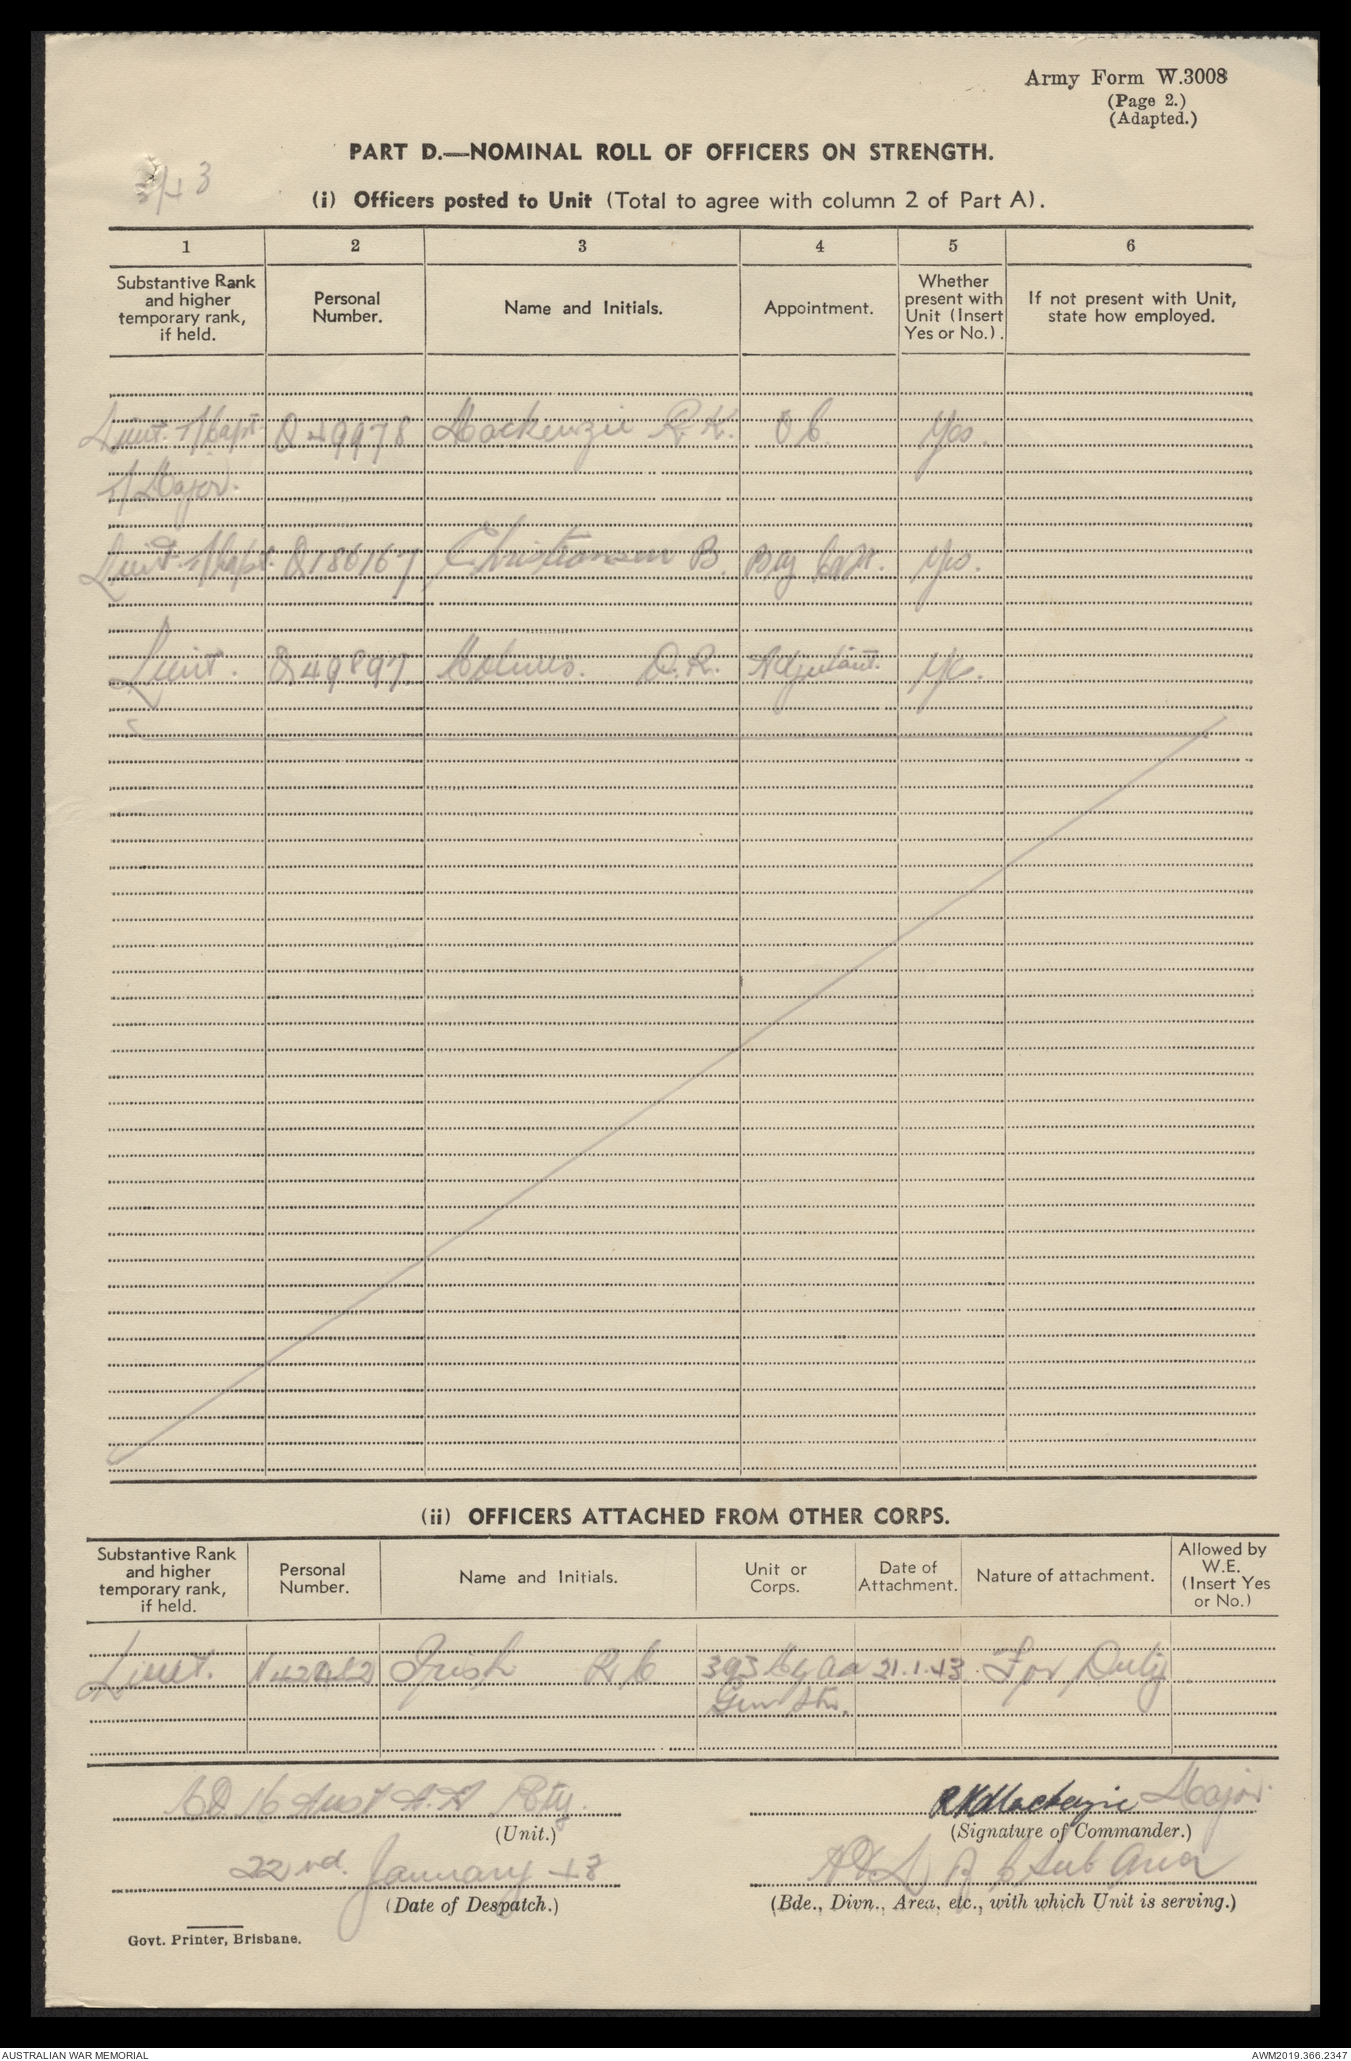 Army Form W.3008
(Page 2.)
(Adapted.)
PART D.—NOMINAL ROLL OF OFFICERS ON STRENGTH.
3/43
(i) Officers posted to Unit (Total to agree with column 2 of Part A).
1 2 3 4 5 6
Substantive Rank and higher temporary rank, if held. Personal Number. Name and Initials. Appointment. Whether present with Unit (Insert Yes or No.). If not present with Unit, state how employed.
Lieut. T/Capt. Q49978 Mackenzie R.K. O C. Yes.
T/Major.
Lieut. T/Capt. Q186167 Christiansen B. Yes.
Lieut. Q49897. Holmes. D.R. Adjutant. Yes.
(ii) OFFICERS ATTACHED FROM OTHER CORPS.
Substantive Rank and higher temporary rank, if held. Personal Number. Name and Initials. Unit or Corps. Date of Attachment. Nature of attachment. Allowed by W.E. (Insert Yes or No.)
Lieut. Irish R C 393 Hy AA 21.1.43. For Duty.
Gun Stn.
16 Aust A.A Bty. RK Mackenzie Major.
(Unit.) (Signature of Commander.)
22nd. January 43 Sub Area
(Date of Despatch.) (Bde., Divn., Area, etc., with which Unit is serving.)
Govt. Printer, Brisbane.
AUSTRALIAN WAR MEMORIAL AWM2019.366.2347